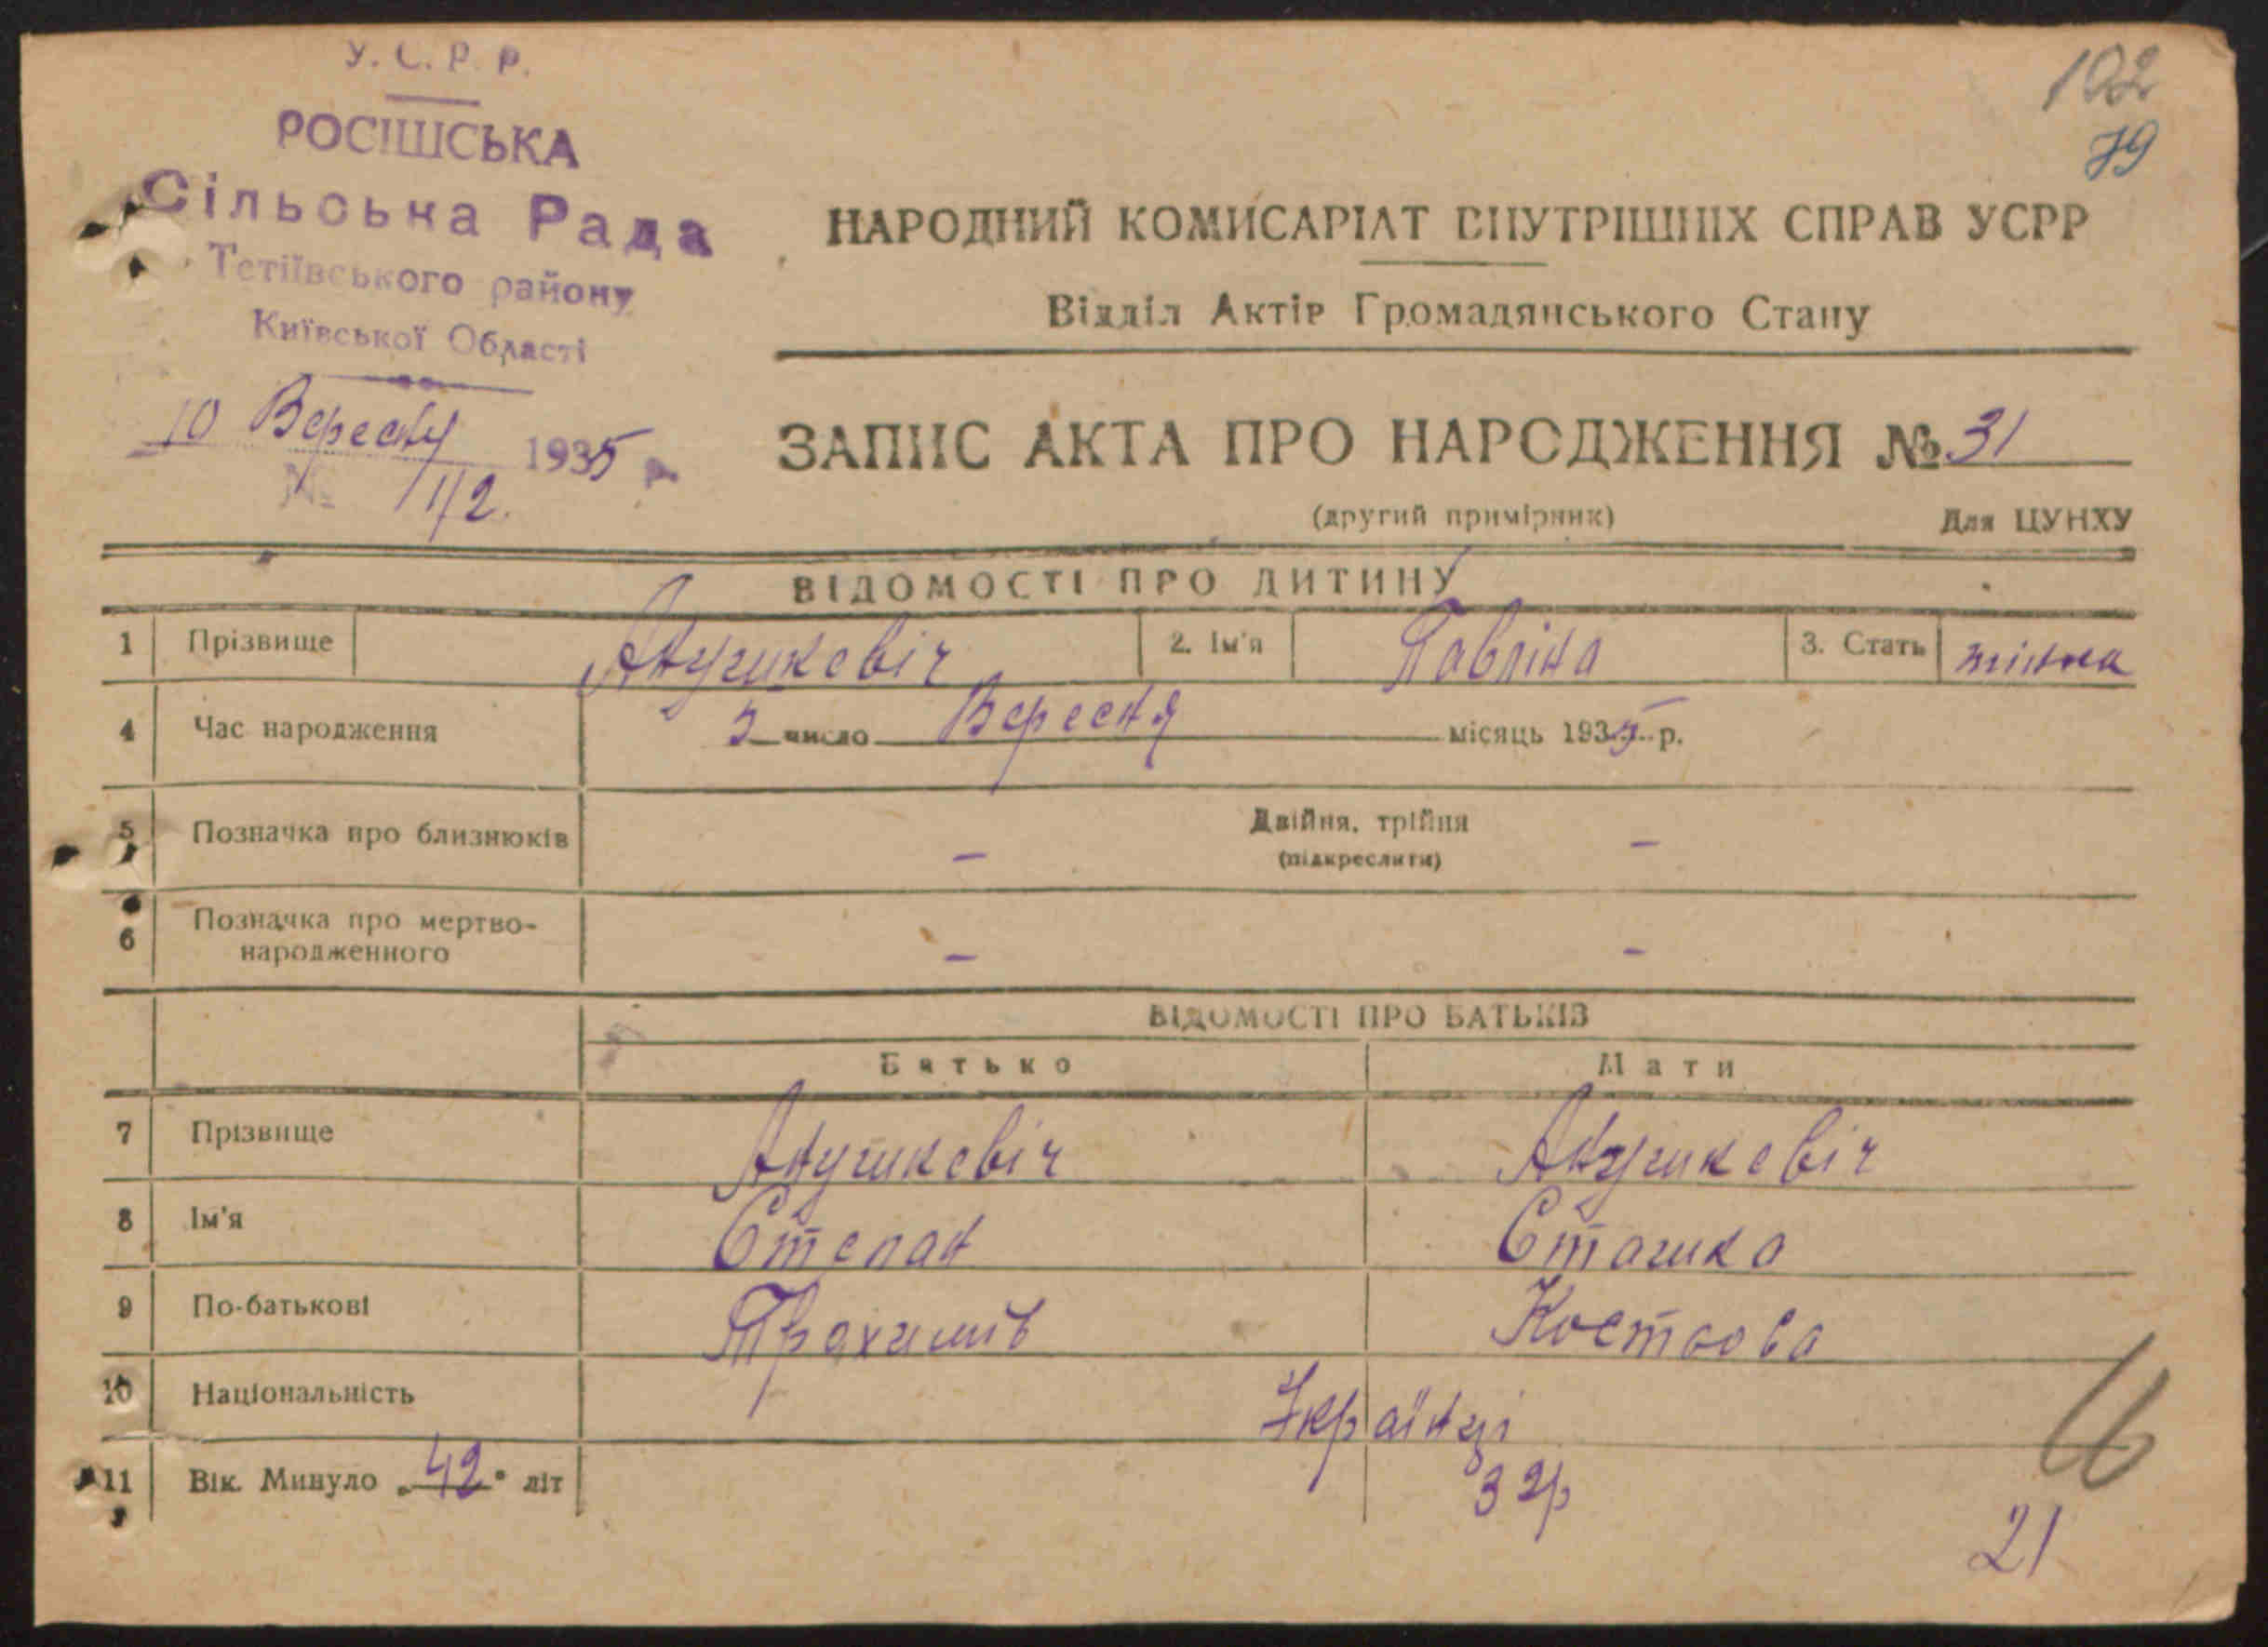 У. С. Р. Р.
РОСІШСЬКА
Сільська Рада
Тетіївського району
Київської Області
10 Вересня 1935 р.
№ 1/2.
102
79
НАРОДНИЙ КОМИСАРІАТ ВНУТРІШНІХ СПРАВ УСРР
Відділ Актів Громадянського Стану
ЗАПИС АКТА ПРО НАРОДЖЕННЯ № 31
(другий примірник) Для ЦУНХУ
ВІДОМОСТІ ПРО ДИТИНУ
1 Прізвище Анушкевіч 2. Ім'я Павліна 3. Стать жіноча
4 Час народження 5 число Вересня місяць 1935 р.
5 Позначка про близнюків - Двійня, трійня -
(підкреслити)
6 Позначка про мертво-
народженного - -
ВІДОМОСТІ ПРО БАТЬКІВ
Батько Мати
7 Прізвище Анушкевіч Анушкевіч
8 Ім'я Степан Сташка
9 По-батькові Трахимів
10 Національність Українці
11 Вік. Минуло 42 літ 32р
21